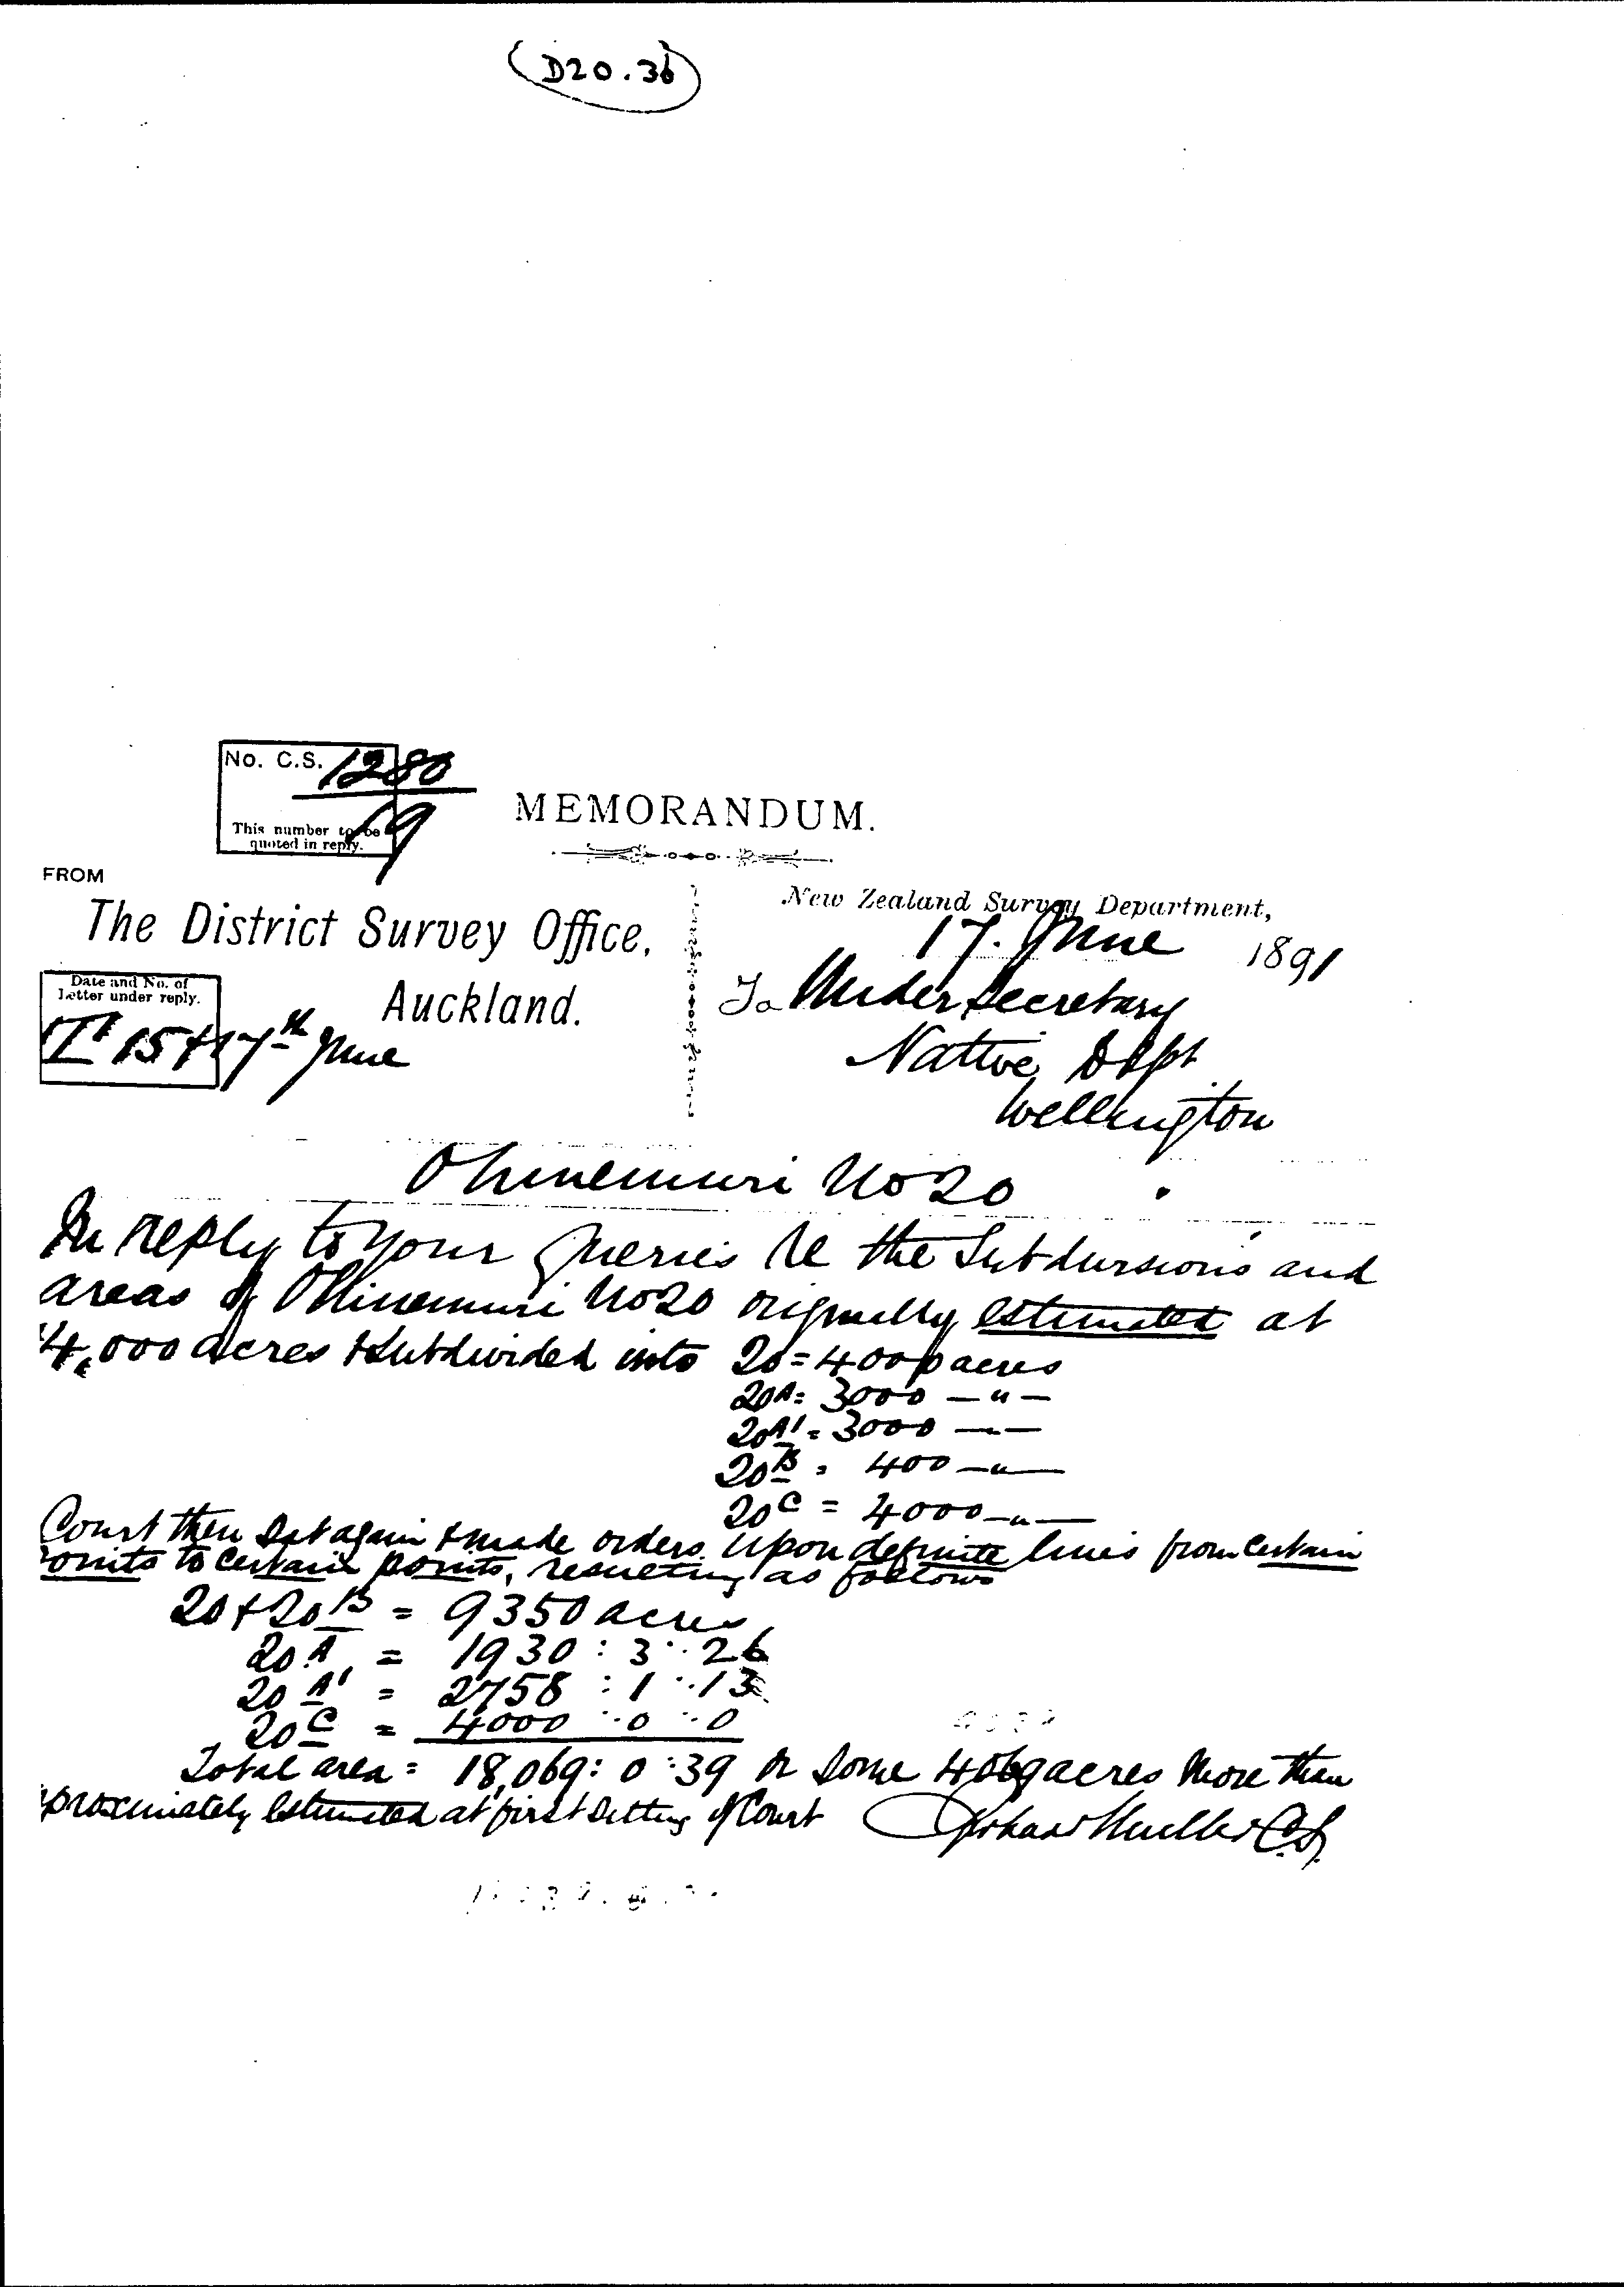 D20.36
No. C.S. 1280
This number to be 9
quoted in reply.
MEMORANDUM.
FROM
The District Survey Office,
Auckland.
New Zealand Survey Department,
17. June 1891
Date and No. of
Letter under reply.
7th June
To Under Secretary
Native Dept
Wellington
Ohinemuri No 20
In reply to your queries re the Subdivisions and
areas of Ohinemuri No 20 originally estimated at
4,000 acres & subdivided into 20 = 4000 acres
20A = 3000 — " —
20A1 = 3000 — " —
20B = 400 — " —
20C = 4000 — " —
Court then sat again & made orders upon definite lines from certain
oints to certain points, resulting as follows
20 + 20B = 9350 acres
20A = 1930 : 3 : 26
20A1 = 2758 : 1 : 13
20C = 4000 : 0 : 0
Total area = 18,069 : 0 : 39 or some 4069 acres more than
proximately estimated at first sitting of Court
Gerhard Mueller C.S.